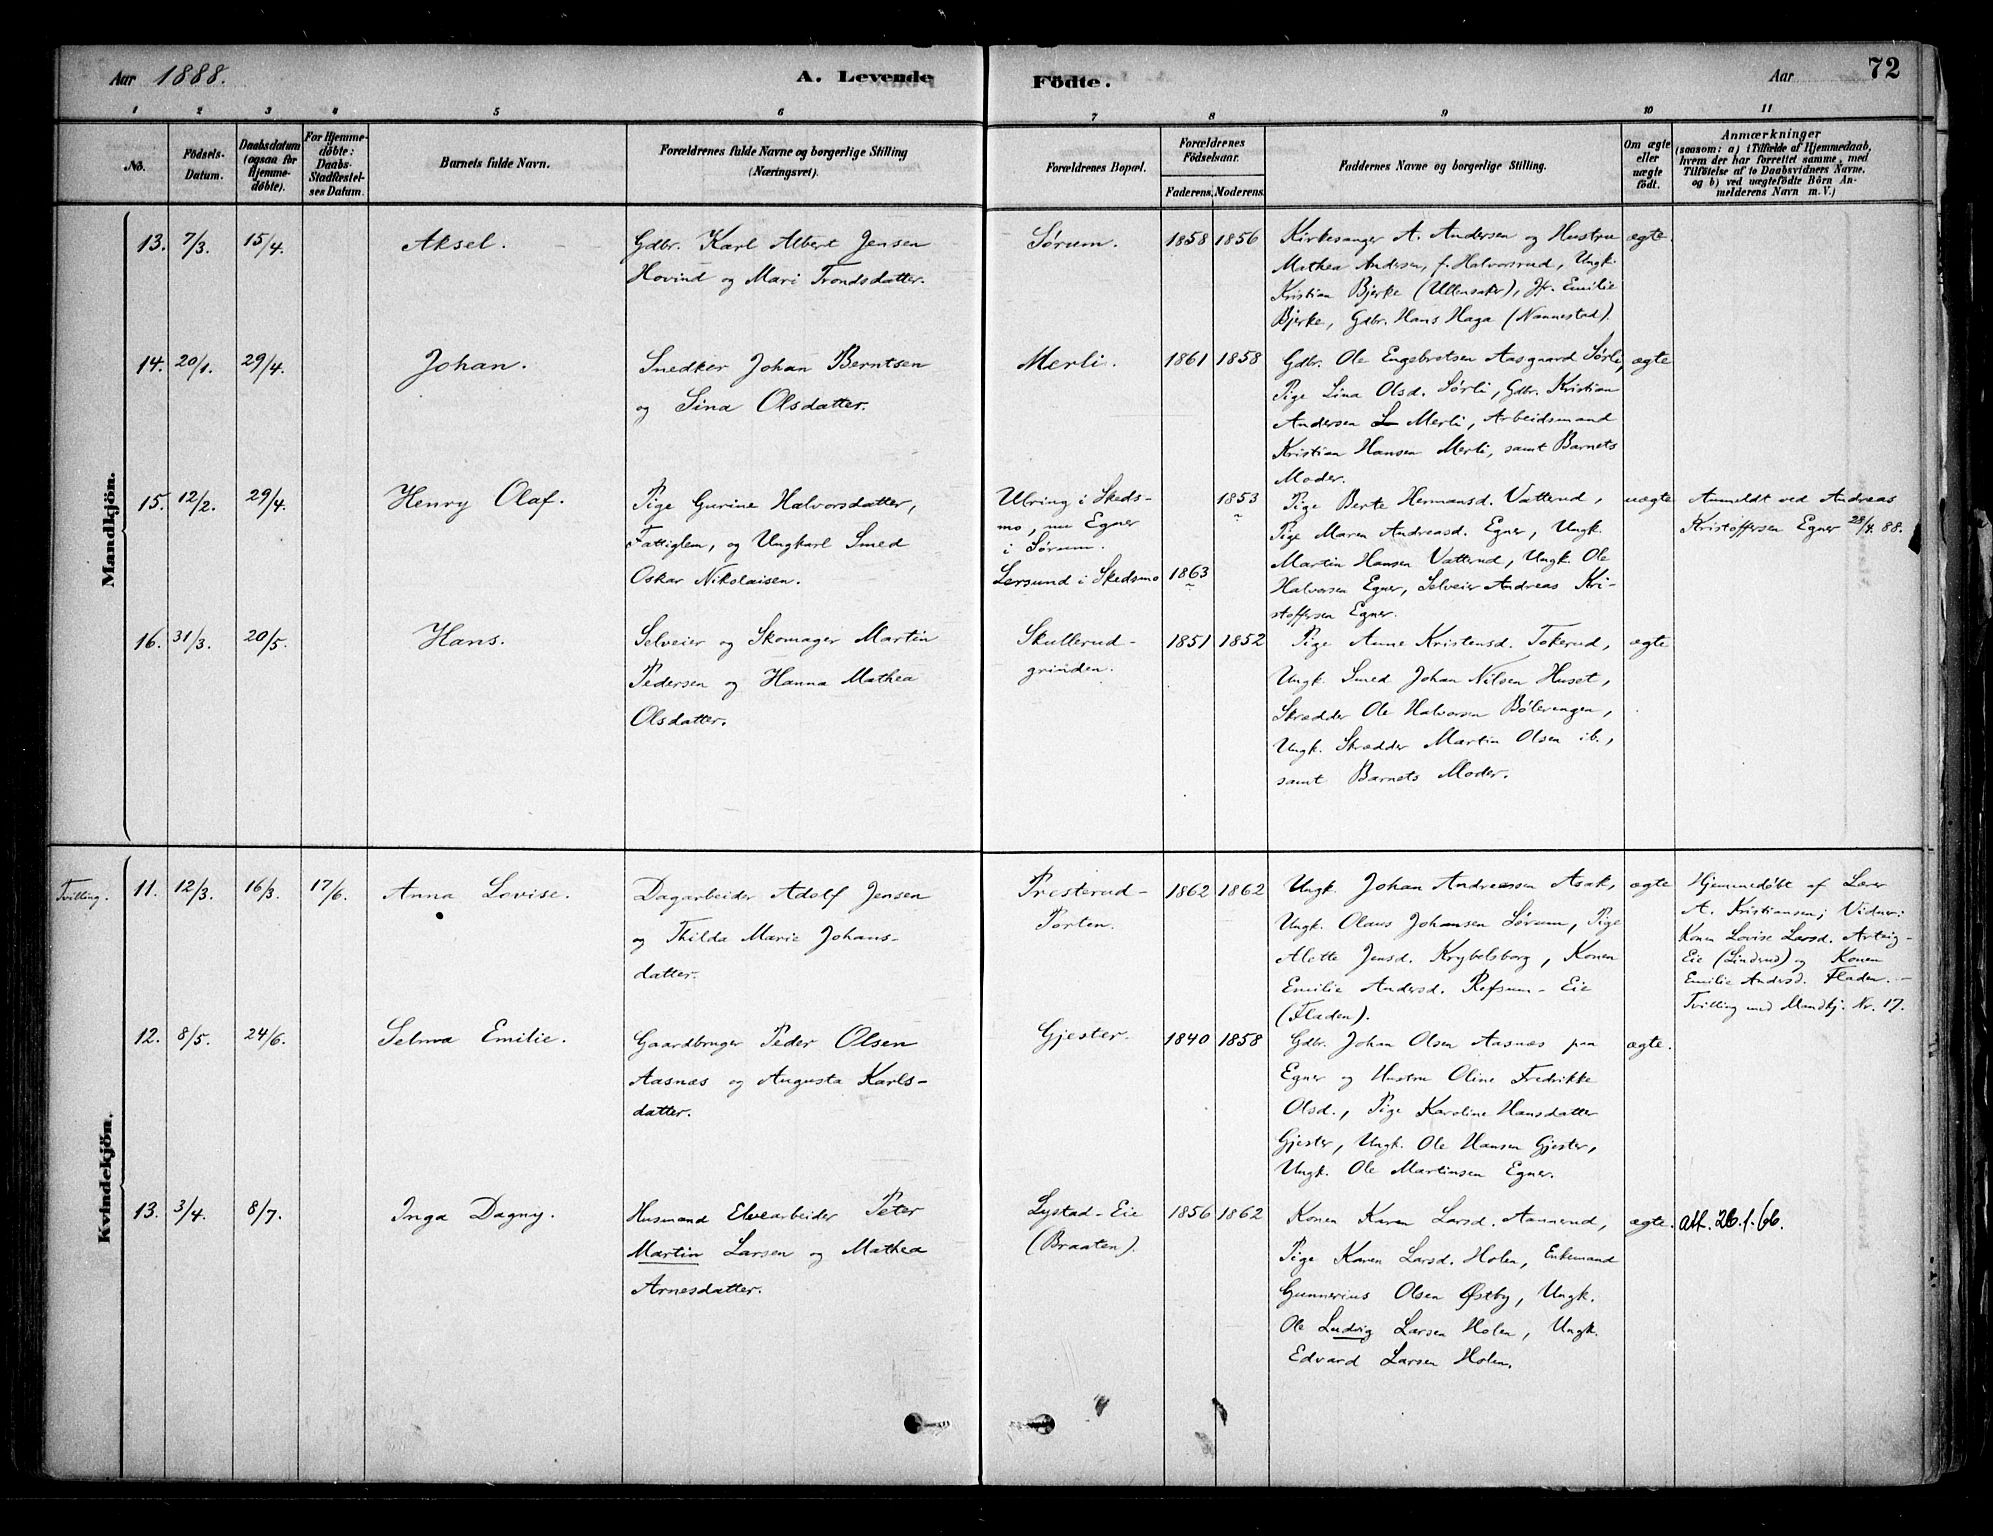 Aar 1888.
A. Levende
Födte.
Aar
72
1
2
3
4
5
6
7
8
9
10
11
No.
Födsels-
Datum.
Daabsdatum
(ogsaa for
Hjemme-
døbte).
For Hjemme-
døbte:
Daabs-
Stadfæstel-
ses Datum.
Barnets fulde Navn.
Forældrenes fulde Navne og borgerlige Stilling
(Næringsvei).
Forældrenes Bopæl.
Forældrenes
Födselsaar.
Faderens.
Moderens.
Faddernes Navne og borgerlige Stilling.
Om ægte
eller
uægte
födt.
Anmærkninger
(saasom: a) i Tilfælde af Hjemmedaab,
hvem der har forrettet samme, med
Tilföielse af to Daabsvidners Navne,
og b) ved uægtefödte Börn An-
melderens Navn m. V.)
Mandkjön.
13. 7/3. 15/4.
Aksel.
Gdbr. Karl Albert Jensen
Hovind og Mari Trondsdatter.
Sørum.
1858 1856
Kirkesanger A. Andersen og Hustru
Mathea Andersen, f. Halvorsrud, Ungk.
Kristian Bjerke (Ullensaker), Fr. Emilie
Bjerke, Gdbr. Hans Haga (Nannestad).
ægte.
14. 20/1. 29/4.
Johan.
Snedker Johan Berntsen
og Sina Olsdatter.
Merli.
1861 1858
Gdbr. Ole Engebretsen Aasgaard Sørli,
Pige Lina Olsd. Sørli, Gdbr. Kristian
Andersen Merli, Arbeidsmand
Kristian Hansen Merli, samt Barnets
Moder.
ægte
15. 12/2. 29/4.
Henry Olaf.
Pige Gurine Halvorsdatter,
Fattiglem, og Ungkarl Smed
Oskar Nikolaisen.
Ulring i Skeds-
mo, nu Egner
i Sørum.
Lersund i Skedsmo
1853
1863
Pige Berte Hermansd. Vatterud,
Pige Maren Andreasd. Egner, Ungk.
Martin Hansen Vatterud, Ungk. Ole
Halvorsen Egner, Selveier Andreas Kri-
stoffersen Egner.
uægte
Anmeldt ved Andreas
Kristoffersen Egner 28/4. 88.
16. 31/3. 20/5.
Hans.
Selveier og Skomager Martin
Pedersen og Hanna Mathea
Olsdatter.
Skullerud-
grinden.
1851 1852
Pige Anne Kristensd. Tokerud,
Ungk. Smed Johan Nilsen Huset,
Skrædder Ole Halvorsen Bölerengen,
Ungk. Skrædder Martin Olsen ib.,
samt Barnets Moder.
ægte
Kvindekjön.
Tvilling.
11. 12/3. 16/3. 17/6.
Anna Lovise.
Dagarbeider Adolf Jensen
og Thilda Marie Johans-
datter.
Presterud-
Porten.
1862 1862
Ungk. Johan Andreassen Asak,
Ungk. Olaus Johansen Sørum, Pige
Alette Jensd. Krybelsborg, Konen
Emilie Andersd. Refsum-Eie
(Fladen).
ægte
Hjemmedøbt af Lærer
A. Kristiansen; Vidner:
Konen Lovise Larsd.
Eie (Linderud) og Konen
Emilie Andersd. Fladen. -
Tvilling med Mandkj. Nr. 17.
12. 8/5. 24/6.
Selma Emilie.
Gaardbruger Peder Olsen
Aasnæs og Augusta Karls-
datter.
Gjester.
1840 1858
Gdbr. Johan Olsen Aasnæs paa
Egner og Hustru Oline Fredrikke
Olsd., Pige Karoline Hansdatter
Gjester, Ungk. Ole Hansen Gjester,
Ungk. Ole Martinsen Egner.
ægte.
13. 3/4. 8/7.
Inga Dagny.
Husmand Elvearbeider Peter
Martin Larsen og Mathea
Arnesdatter.
Lystad-Eie
(Braaten).
1856 1862
Konen Karen Larsd. Aannerud,
Pige Karen Larsd. Holen, Enkemand
Gunnerius Olsen Østby, Ungk.
Ole Ludvig Larsen Holen, Ungk.
Edvard Larsen Holen.
ægte.
Att. 26.1.66.